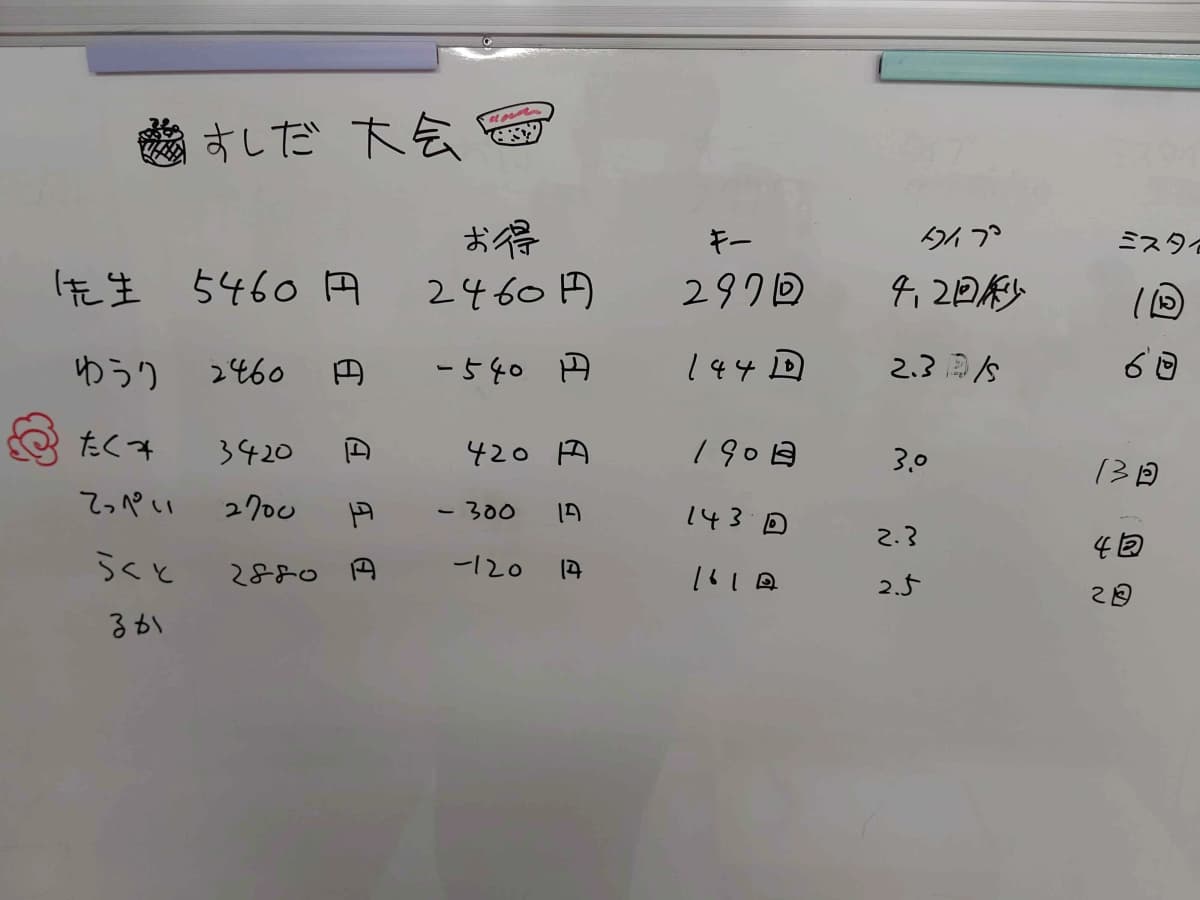 すしだ 大会
お得 キー タイプ ミスタイ
先生 5460 円 2460円 297回 4.2回/秒 1回
ゆうり 2460 円 -540 円 144回 2.3回/s 6回
3420 円 420 円 190回 3.0 13回
てっぺい 2700 円 -300 円 143回 2.3 4回
らくと 2880 円 -120 円 161回 2.5 2回
るか